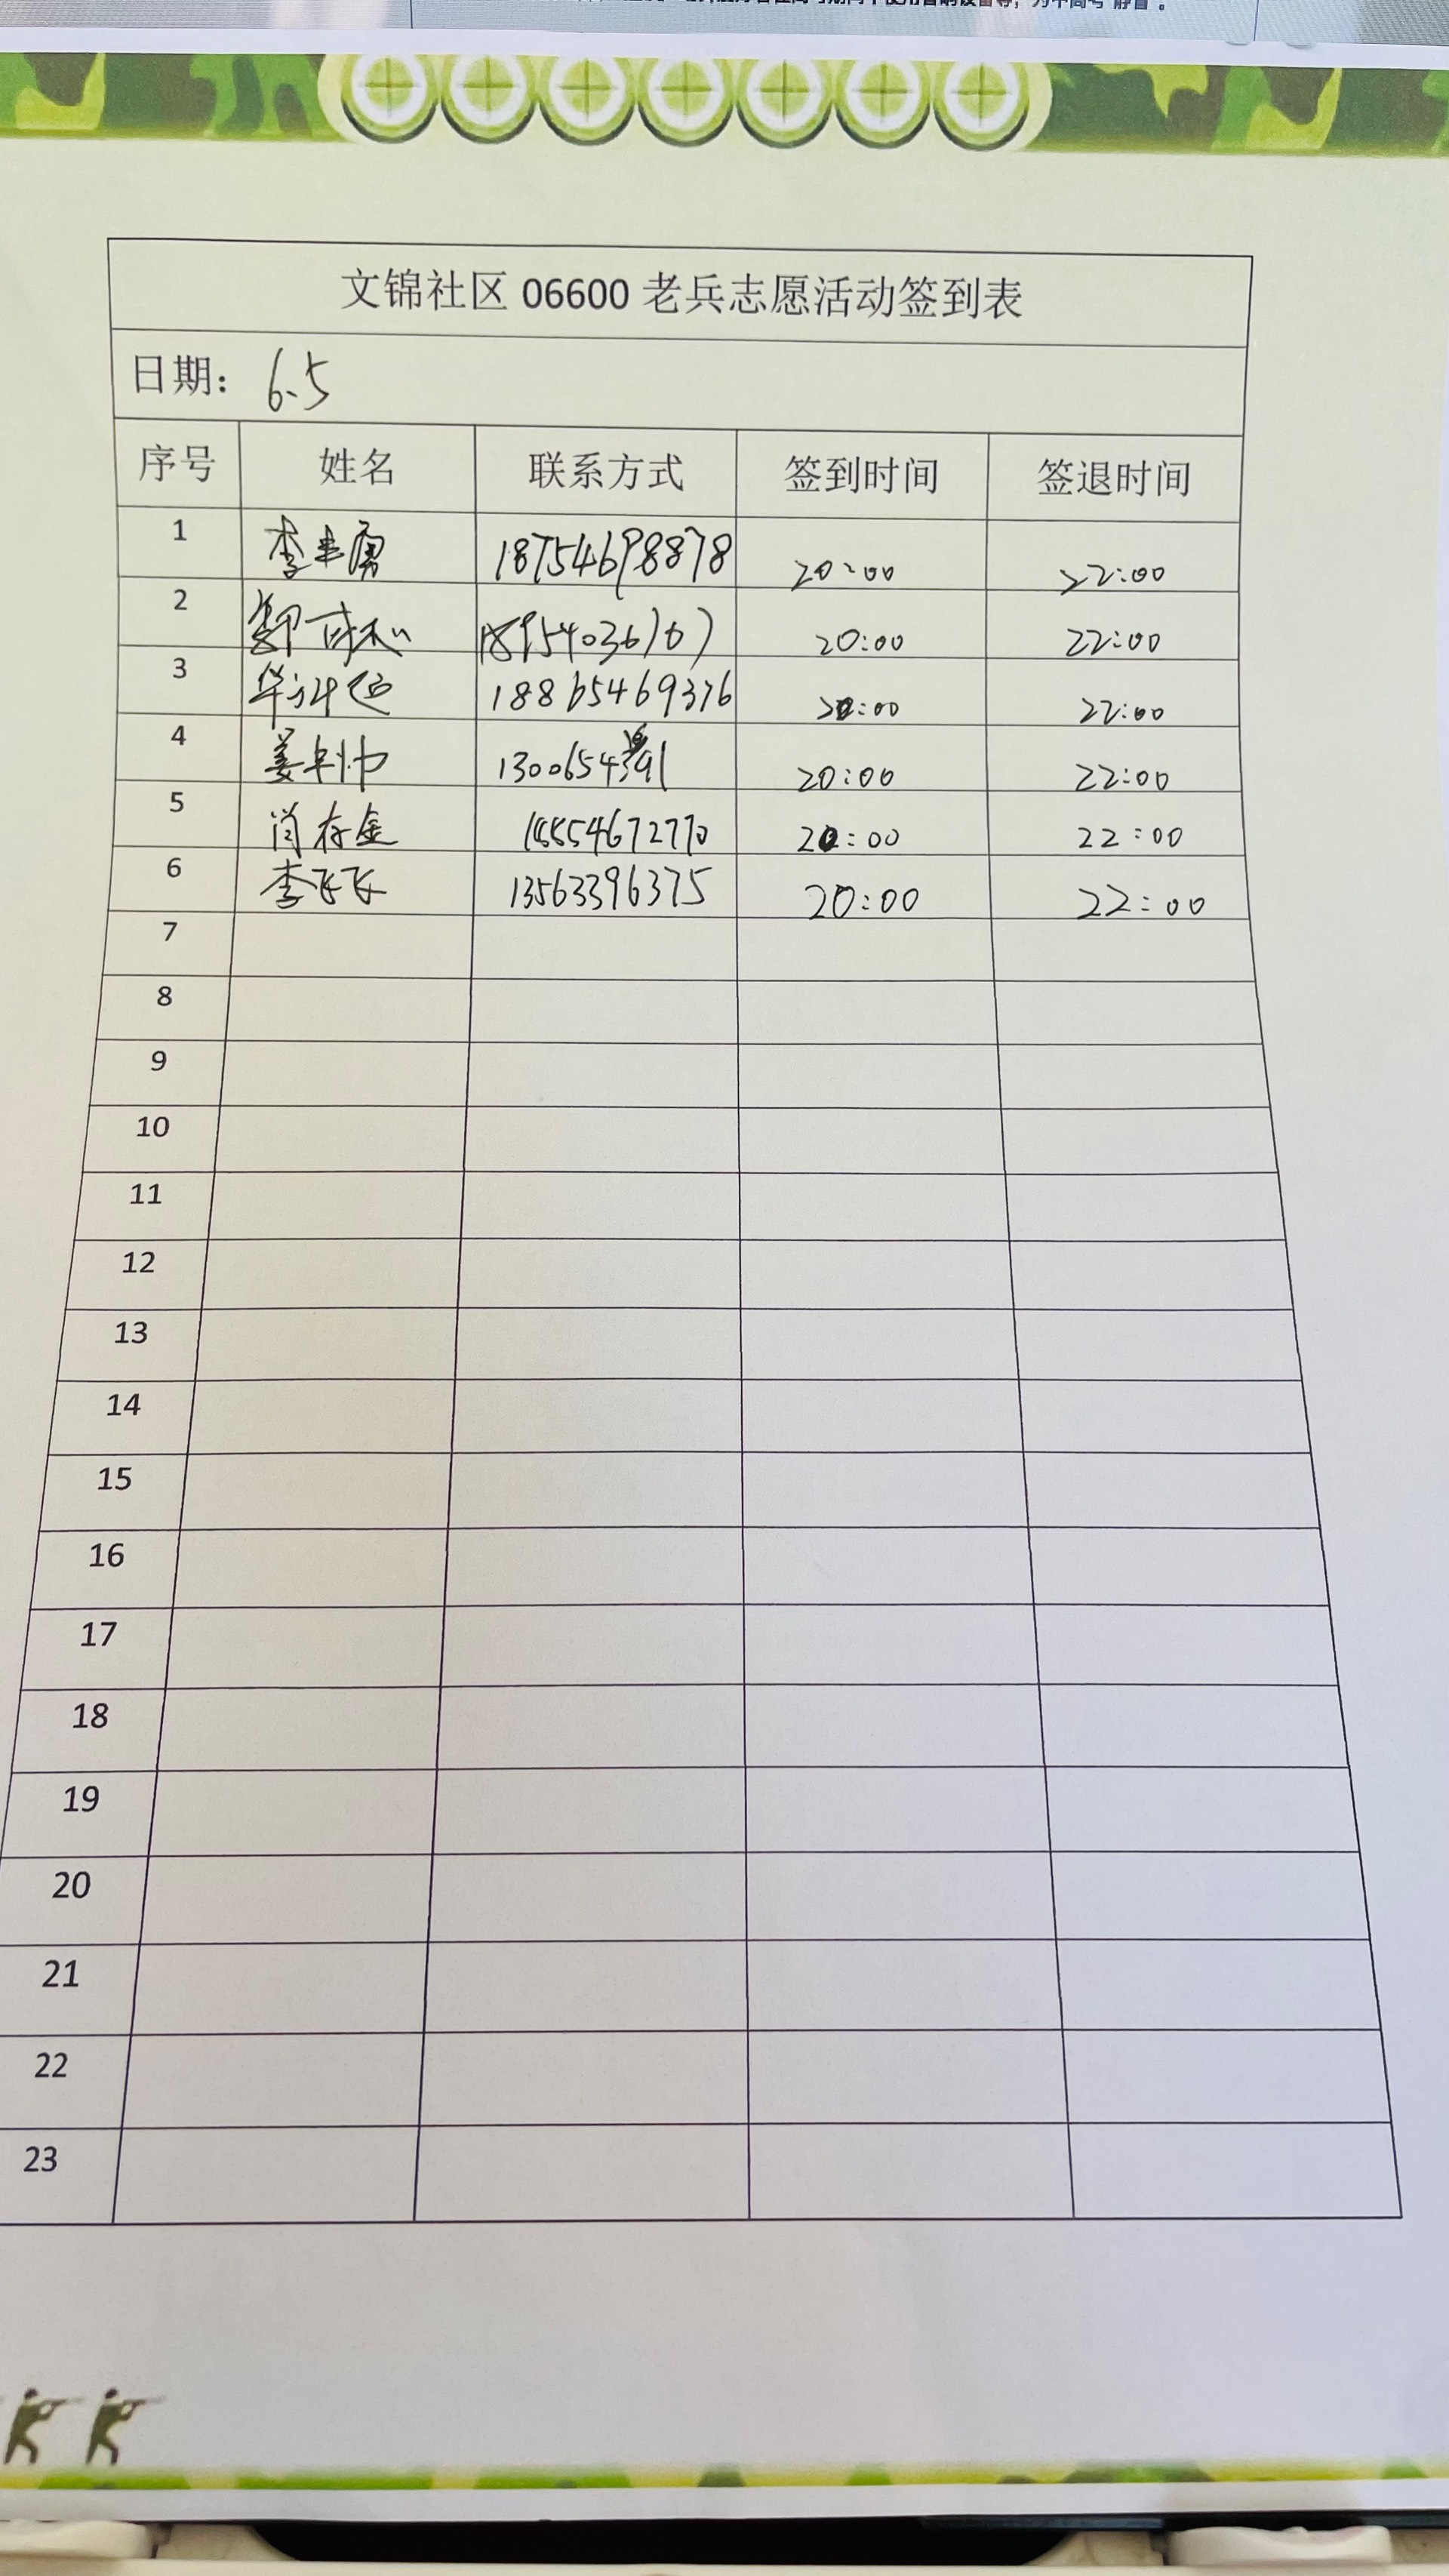 文锦社区 06600 老兵志愿活动签到表
日期： 6.5
序号 姓名 联系方式 签到时间 签退时间
1 李 18754698878 20:00 22:00
2 20:00 22:00
3 华 18865469376 20:00 22:00
4 姜 20:00 22:00
5 肖存金 15554672770 20:00 22:00
6 李飞飞 13563396375 20:00 22:00
7
8
9
10
11
12
13
14
15
16
17
18
19
20
21
22
23